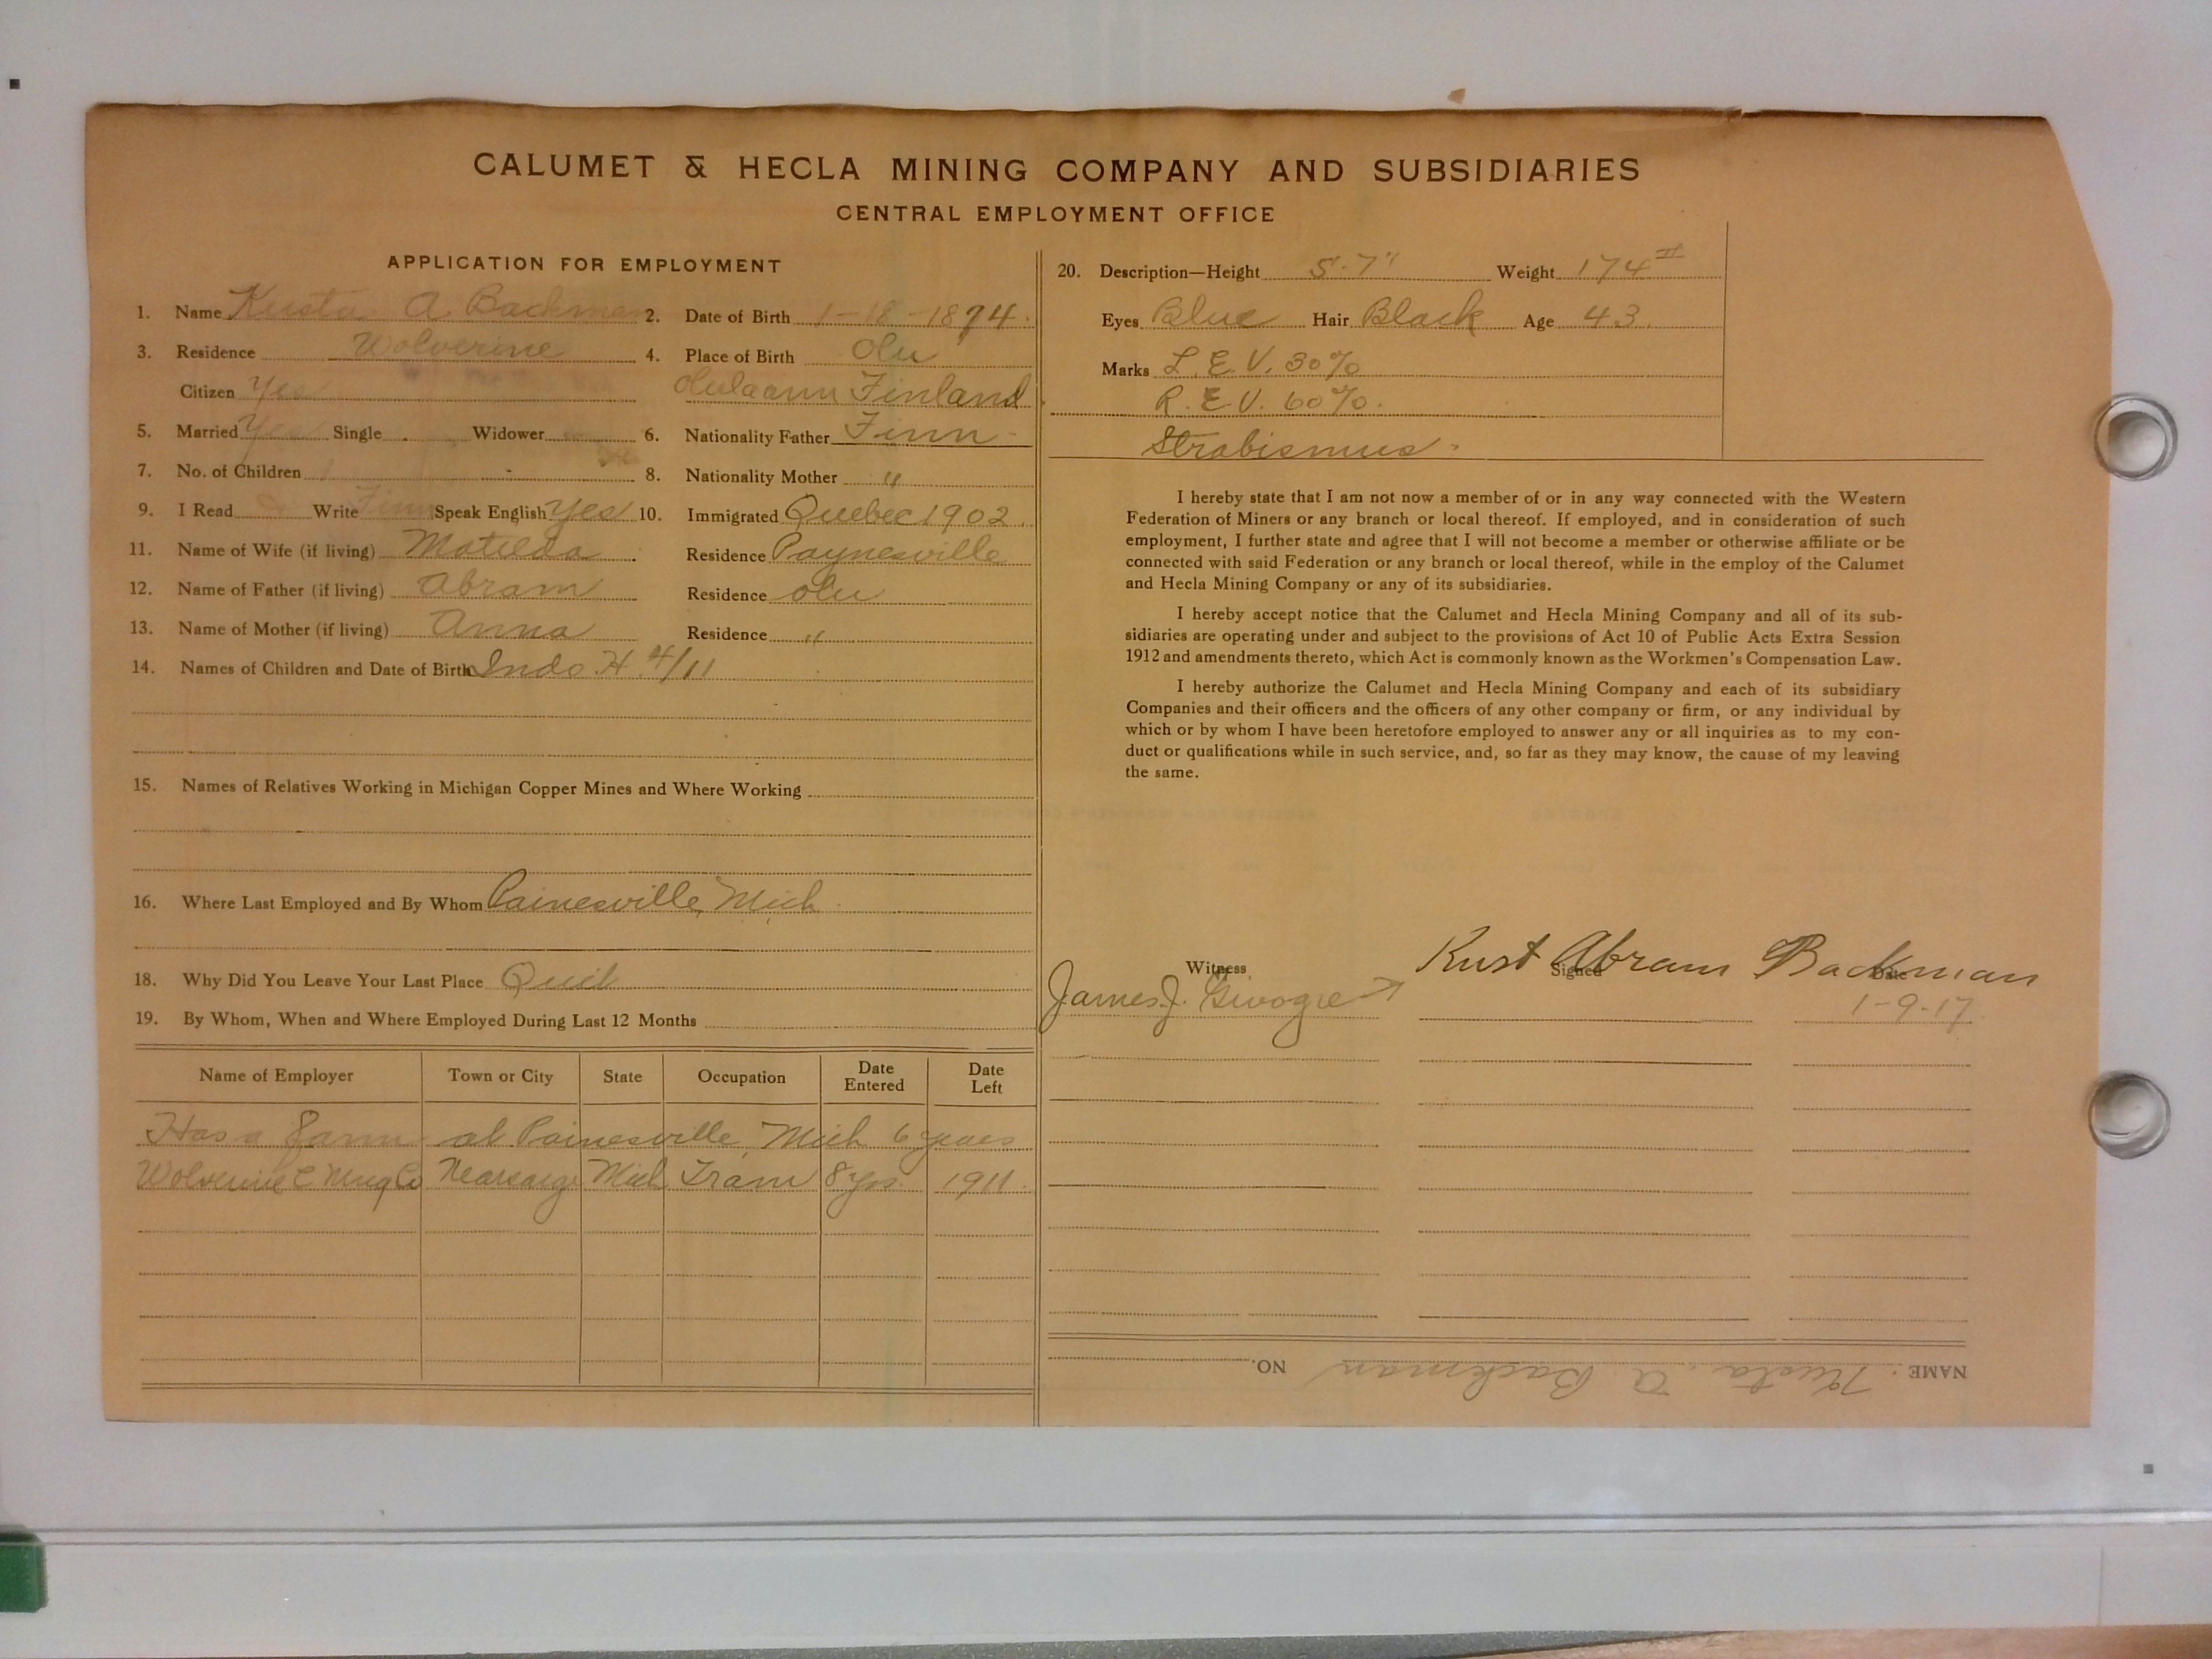 CALUMET & HECLA MINING COMPANY AND SUBSIDIARIES
CENTRAL EMPLOYMENT OFFICE
APPLICATION FOR EMPLOYMENT
1. Name Kusta A Backman 2. Date of Birth 1-18-1874.
3. Residence Wolverine 4. Place of Birth Olu
Citizen Yes Finland
5. Married Yes Single Widower 6. Nationality Father Finn
7. No. of Children 1 8. Nationality Mother "
9. I Read & Write Finn Speak English Yes 10. Immigrated Quebec 1902
11. Name of Wife (if living) Matilda Residence Paynesville
12. Name of Father (if living) Abram Residence Olu
13. Name of Mother (if living) Anna Residence "
14. Names of Children and Date of Birth Indo H. 4/11
15. Names of Relatives Working in Michigan Copper Mines and Where Working
16. Where Last Employed and By Whom Painesville, Mich
18. Why Did You Leave Your Last Place Quit
19. By Whom, When and Where Employed During Last 12 Months
Name of Employer Town or City State Occupation Date Entered Date Left
Has a farm at Painesville, Mich 6 years
Wolverine C Mng Co Kearsarge Mich Tram 8 yrs. 1911
20. Description—Height 5'-7" Weight 174
Eyes Blue Hair Black Age 43.
Marks L. E. V. 30%
R. E. V. 60%.
Strabismus
I hereby state that I am not now a member of or in any way connected with the Western
Federation of Miners or any branch or local thereof. If employed, and in consideration of such
employment, I further state and agree that I will not become a member or otherwise affiliate or be
connected with said Federation or any branch or local thereof, while in the employ of the Calumet
and Hecla Mining Company or any of its subsidiaries.
I hereby accept notice that the Calumet and Hecla Mining Company and all of its sub-
sidiaries are operating under and subject to the provisions of Act 10 of Public Acts Extra Session
1912 and amendments thereto, which Act is commonly known as the Workmen's Compensation Law.
I hereby authorize the Calumet and Hecla Mining Company and each of its subsidiary
Companies and their officers and the officers of any other company or firm, or any individual by
which or by whom I have been heretofore employed to answer any or all inquiries as to my con-
duct or qualifications while in such service, and, so far as they may know, the cause of my leaving
the same.
Witness Signed Date
James J. Kust Abram Backman 1-9-17
NAME Kusta. A Backman NO.